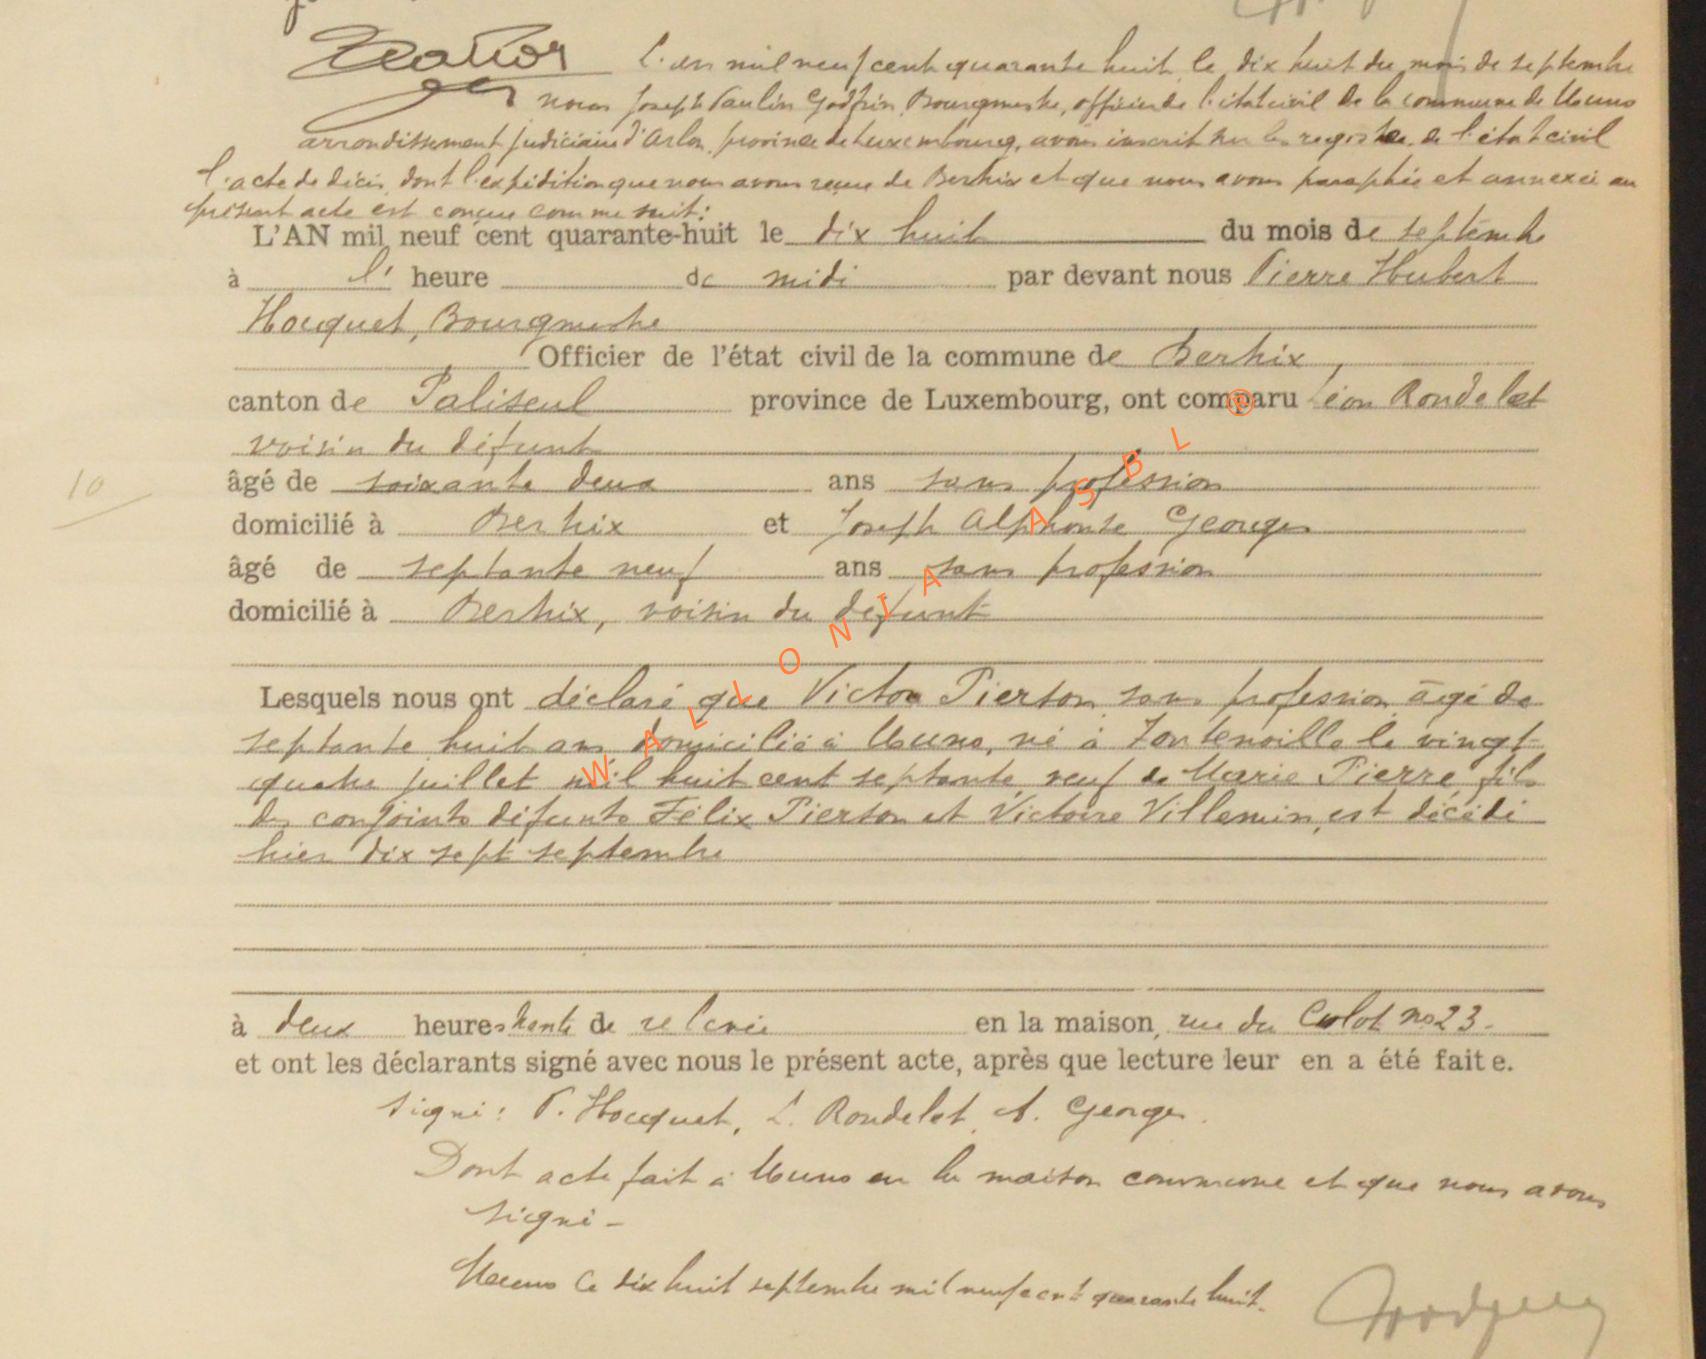 L'an mil neuf cent quarante huit, le dix huit du mois de septembre
nous Joseph Paulin Godfrin, Bourgmestre, officier de l'état civil de la commune de Muno
arrondissement judiciaire d'Arlon, province de Luxembourg, avons inscrit sur les registres de l'état civil
l'acte de décès, dont l'expédition que nous avons reçue de Bertrix et que nous avons paraphée et annexée au
présent acte est conçue comme suit:
L'AN mil neuf cent quarante-huit le dix huit du mois de septembre
à l' heure de midi par devant nous Pierre Hubert
Hocquet, Bourgmestre
Officier de l'état civil de la commune de Bertrix
canton de Paliseul province de Luxembourg, ont comparu Léon Rondelet
voisin du défunt
âgé de soixante deux ans sans profession
domicilié à Bertrix et Joseph Alphonse Georges
âgé de septante neuf ans sans profession
domicilié à Bertrix, voisin du défunt
Lesquels nous ont déclaré que Victor Pierson, sans profession, âgé de
septante huit ans domicilié à Muno, né à Fontenoille le vingt
quatre juillet mil huit cent septante neuf de Marie Pierre, fils
des conjoints défunts Félix Pierson et Victoire Villemin, est décédé
hier dix sept septembre
à deux heures trente de relevée en la maison, rue du Culot no 23.
et ont les déclarants signé avec nous le présent acte, après que lecture leur en a été faite.
signé: P. Hocquet, L. Rondelet, A. Georges.
Dont acte fait à Muno en la maison commune et que nous avons
signé -
Muno ce dix huit septembre mil neuf cent quarante huit.
10
WALLONIA ASBL ®